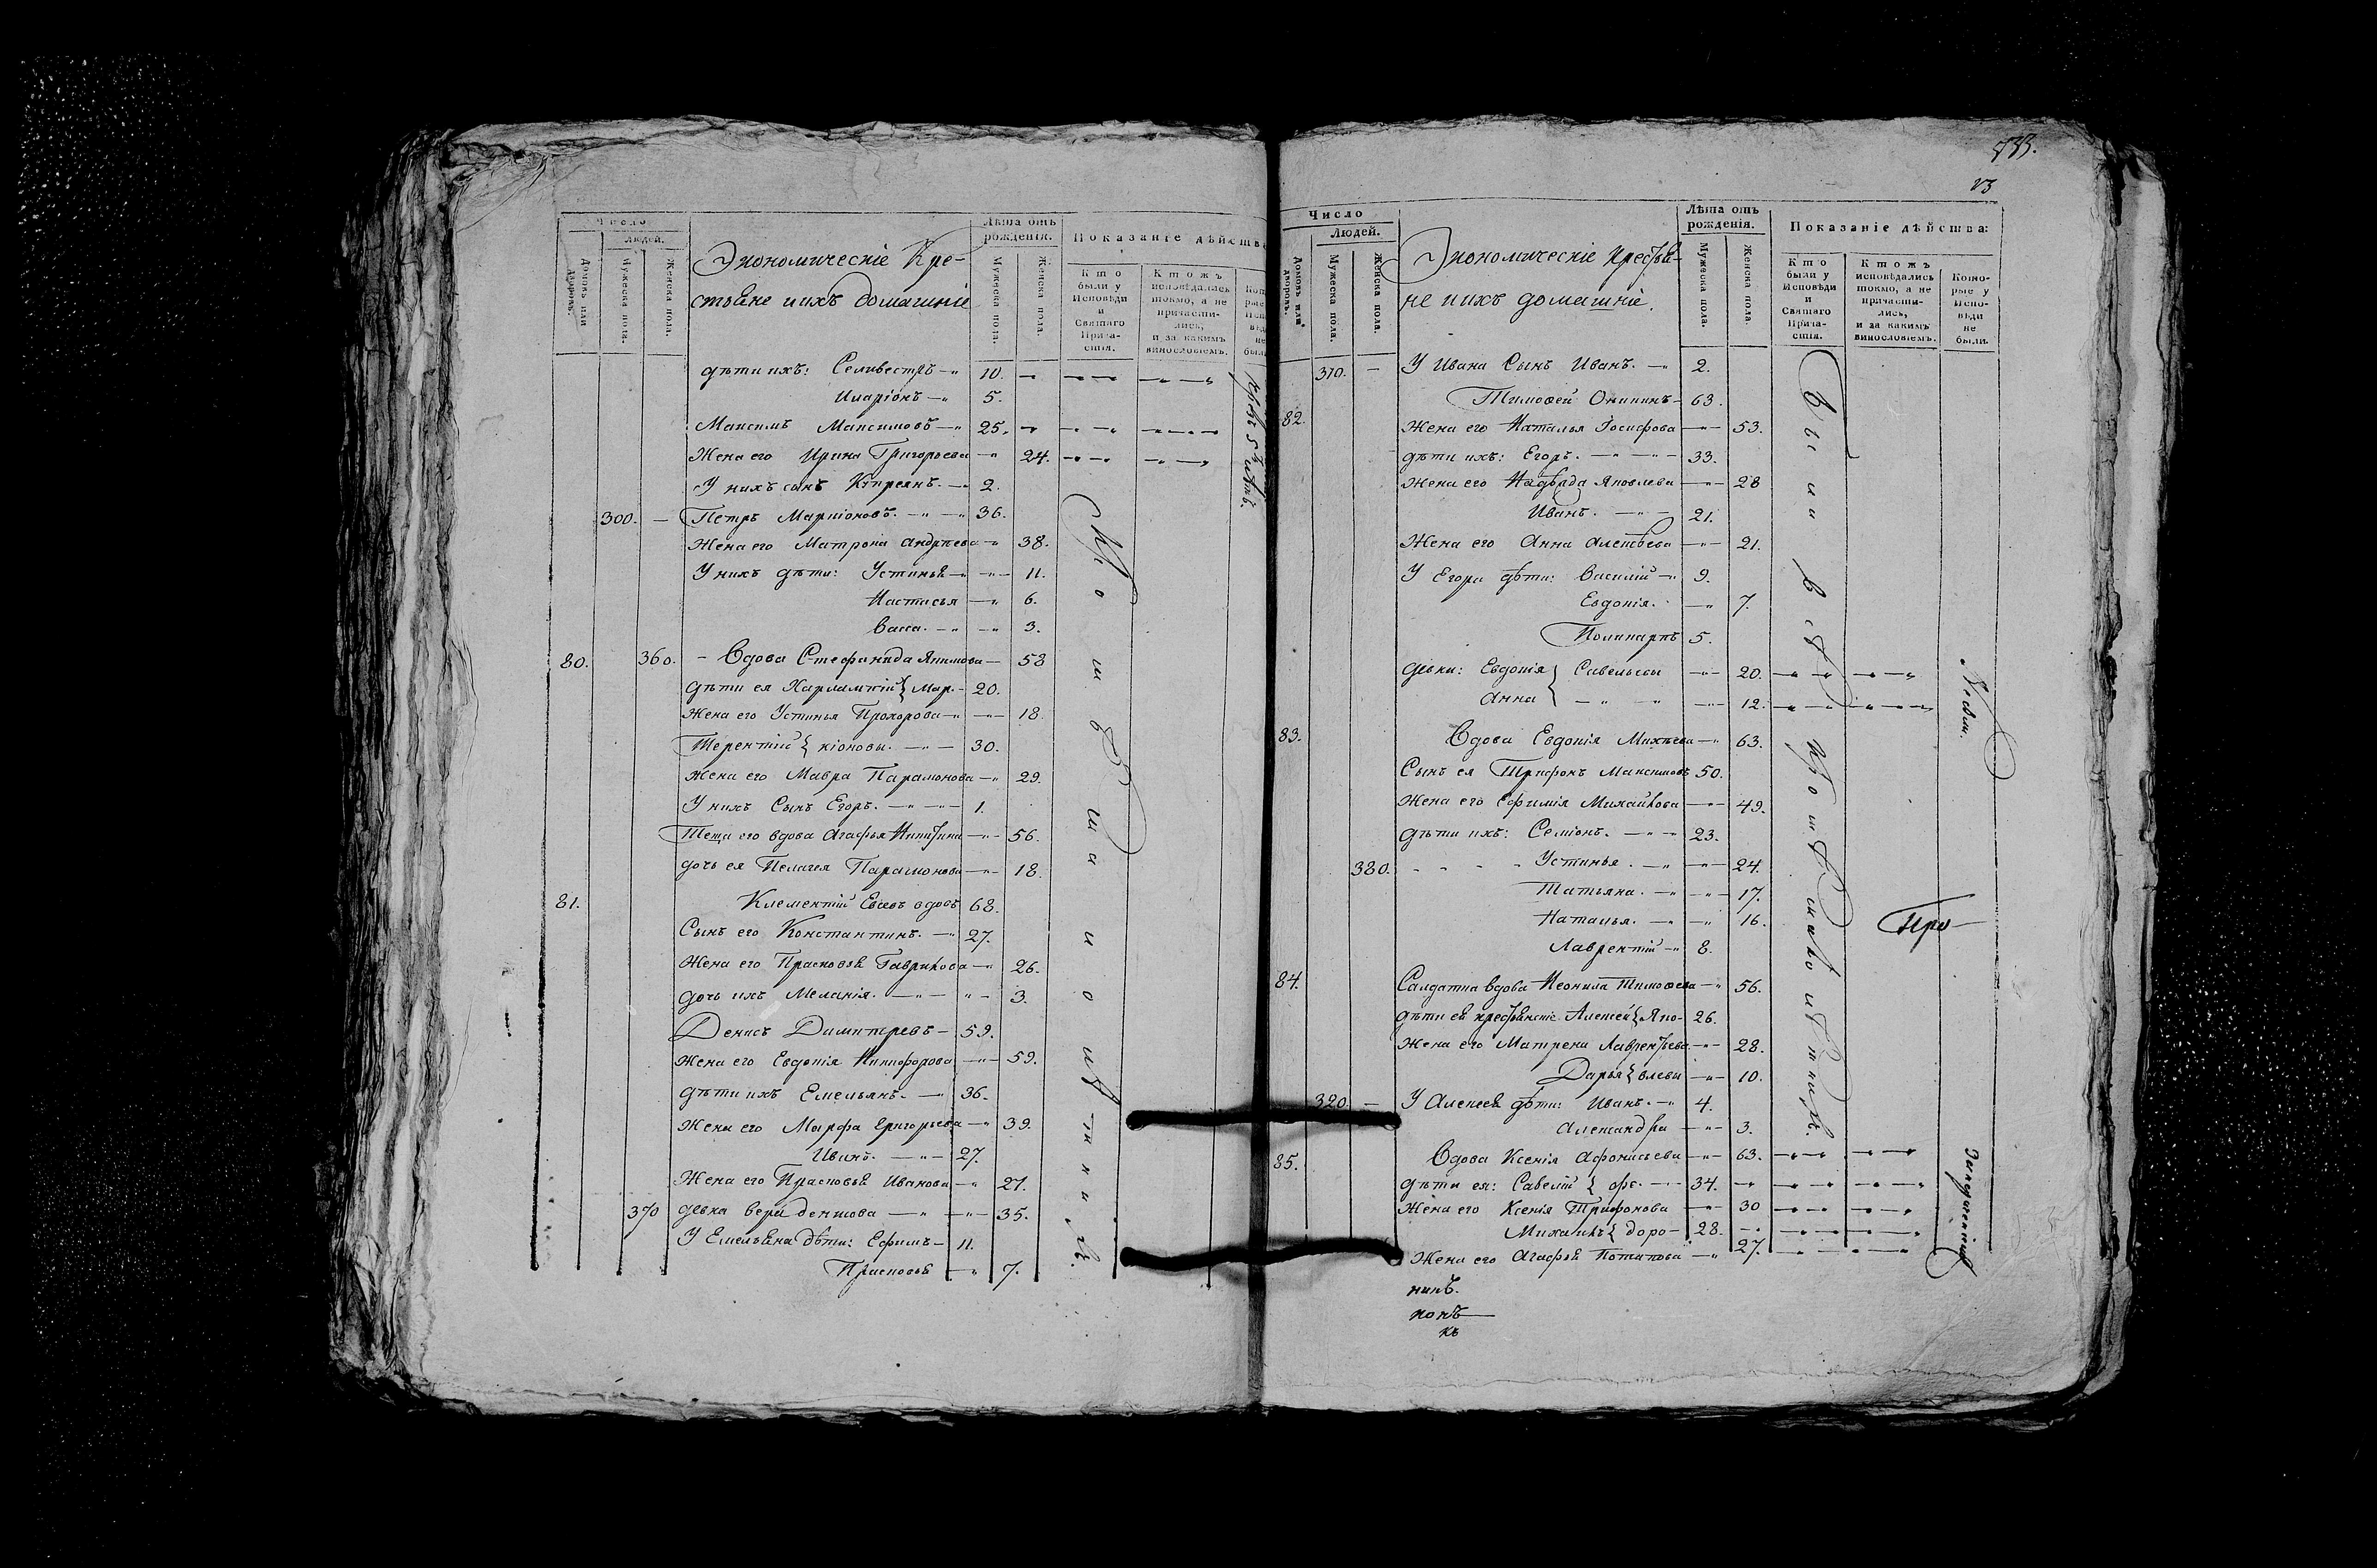 Число
Людей.
Домовъ или дворовъ.
Мужеска пола.
Женска пола.
Экономическіе Кре-
стьяне и ихъ домашніе
Лѣта отъ рожденія.
Мужеска пола.
Женска пола.
Показаніе дѣйства
Кто были у Исповѣди и Святаго Прича-стія.
Ктожъ исповѣдались токмо, а не причасти-лись, и за какимъ винословіемъ.
дѣти ихъ: Селивестръ 10.
Иларіонъ 5.
Максимъ Максимовъ 25.
Жена его Ирина Григорьева 24.
У нихъ сынъ Кипреянъ. 2.
300. Петръ Маркіоновъ. 36.
Жена его Матрона Андрѣева 38.
У нихъ дѣти: Устинья 11.
Настасья 6.
Васса. 3.
80. 360. Вдова Стефанида Якимова 58
дѣти ея Харлампій { Мар- 20.
Жена его Устинья Прохорова 18.
Терентій { кіоновы. 30.
Жена его Мавра Парамонова 29.
У нихъ Сынъ Егоръ. 1.
Теща его вдова Агафья Никитина 56.
дочь ея Пелагея Парамонова 18.
81. Клементій Евсевъ вдовъ 68.
Сынъ его Константинъ. 27.
Жена его Прасковья Гаврилова 26.
дочь ихъ Меланія. 3.
Денисъ Димитревъ 59.
Жена его Евдокія Никифорова 59.
дѣти ихъ Емельянъ. 36.
Жена его Марфа Григорьева 39.
Иванъ. 27.
Жена его Прасковья Иванова 27.
370 девка вера денисова 35.
У Емельяна дѣти: Ефимъ 11.
Прасковья 7.
Число
Людей.
Домовъ или дворовъ.
Мужеска пола.
Женска пола.
Экономическіе кресьтья-
не и ихъ домашніе.
Лѣта отъ рожденія.
Мужеска пола.
Женска пола.
Показаніе дѣйства:
Кто были у Исповѣди и Святаго Прича-стія.
Ктожъ исповѣдались токмо, а не причасти-лись, и за какимъ винословіемъ.
Кото-рые у Испо-вѣди не были.
310. У Ивана Сынъ Иванъ. 2.
82. Тимоѳей Оникинъ 63.
Жена его Наталья Іосифова 53.
дѣти ихъ: Егоръ. 33.
Жена его Надѣжда Яковлева 28
Иванъ. 21.
Жена его Анна Алексѣева 21.
У Егора дѣти: Василій 9.
Евдокія. 7.
Поликарпъ 5.
девки: Евдокія } Савельевы 20.
Анна } 12.
83. Вдова Евдокія Михѣева 63.
Сынъ ея Трифонъ Максимовъ 50.
Жена его Ефимія Михайлова 49.
дѣти ихъ: Семіонъ. 23.
380. Устинья. 24.
Татьяна. 17.
Наталья. 16.
Лаврентій 8.
84. Салдатка вдова Неонила Тимоѳева 56.
дѣти ея кресьтьянскіе Алексей { Яко- 26.
Жена его Матрена Лаврентьева 28.
Дарья { влевы 10.
320. У Алексея дѣти: Иванъ. 4.
Александра 3.
85. Вдова Ксенія Афонасьева 63.
дѣти ея: Савелій { фе- 34.
Жена его Ксенія Трифонова 30
Михаилъ { доро- 28.
Жена его Агафья Потапова 27.